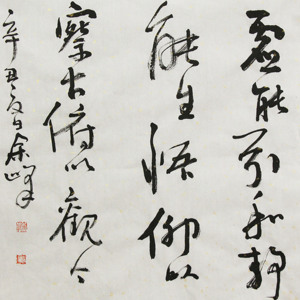 虚能引和静
能生悟仰以
察古俯以觀今
辛丑夏日余峰